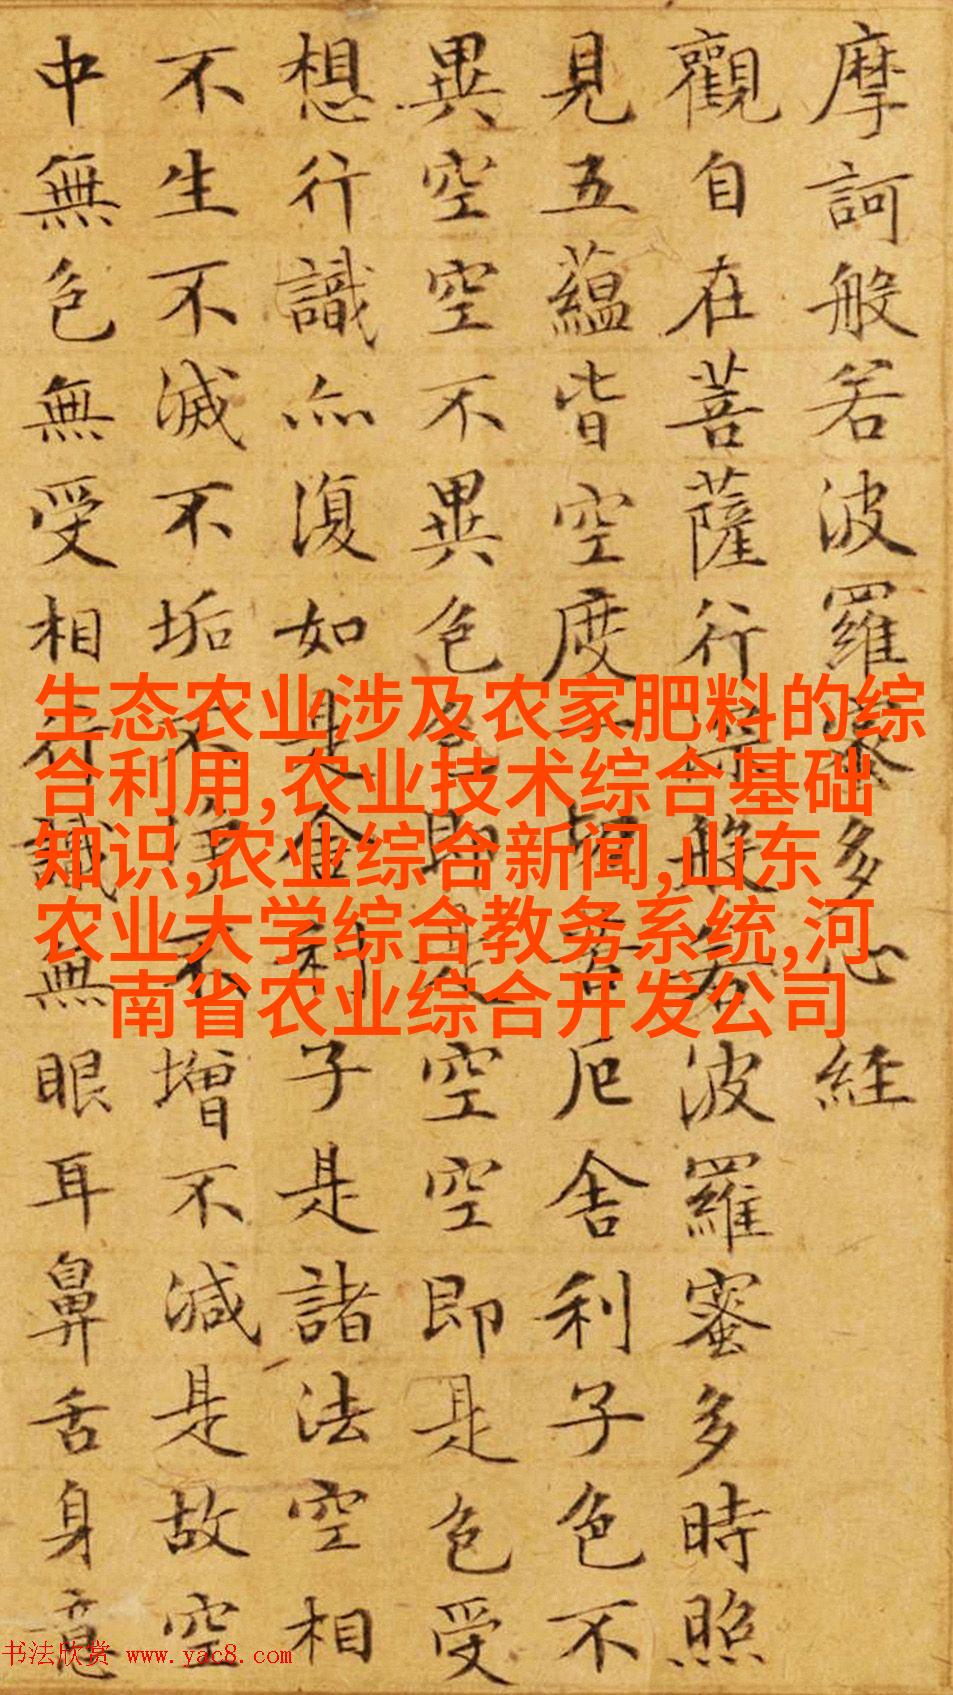 摩訶般若波羅蜜多心経
觀自在菩薩行深般若波羅蜜多時照
見五蘊皆空度一切苦厄舍利子色不
異空空不異色色即是空空即是色受
想行識亦復如是舍利子是諸法空相
不生不滅不垢不淨不增不減是故空
中無色無受相行識無眼耳鼻舌身意
生态农业涉及农家肥料的综
合利用,农业技术综合基础
知识,农业综合新闻,山东
农业大学综合教务系统,河
南省农业综合开发公司
书法欣赏 www.yac8.com